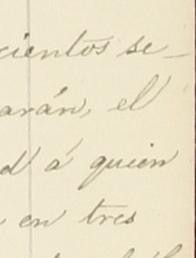 cientos se-
arán, el
d á quien
en tres